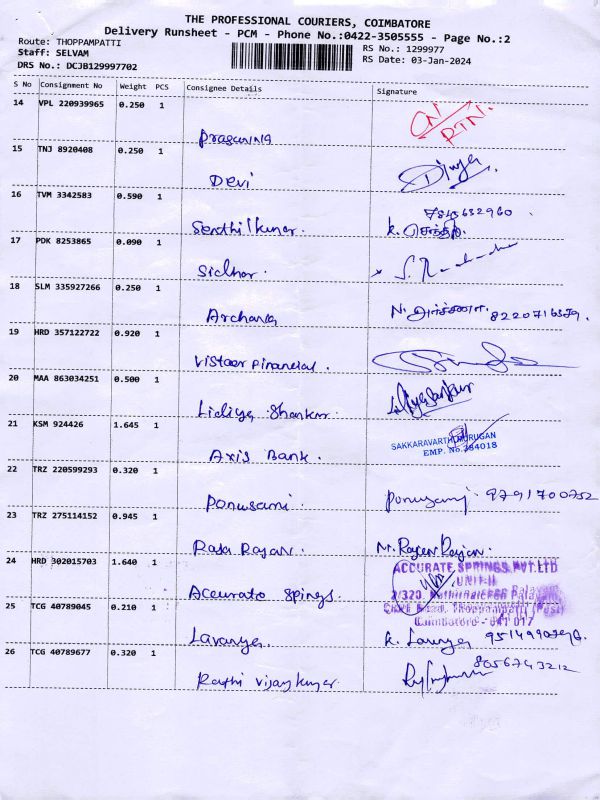 THE PROFESSIONAL COURIERS, COIMBATORE
Delivery Runsheet - PCM - Phone No.:0422-3505555 - Page No.:2
Route: THOPPAMPATTI
Staff: SELVAM
DRS No.: DCJB129997702
RS No.: 1299977
RS Date: 03-Jan-2024
S No Consignment No Weight PCS Consignee Details Signature
14 VPL 220939965 0.250 1
Prasanna
CN/RTN.
15 TNJ 8920408 0.250 1
Devi
Divya
16 TVM 3342583 0.590 1
Senthilkumar.
7845632960.
k. செந்தில்
17 PDK 8253865 0.090 1
Sidhar.
18 SLM 335927266 0.250 1
Archana
N. அர்ச்சனா.
19 HRD 357122722 0.920 1
Vistaar Financial.
20 MAA 863034251 0.500 1
Lidiya Shankar.
21 KSM 924426 1.645 1
Axis Bank.
SAKKARAVARTHI MURUGAN
EMP. No.
22 TRZ 220599293 0.320 1
Ponusami.
Ponusamj 9791700752
23 TRZ 275114152 0.945 1
Raja Rajan.
24 HRD 302015703 1.640 1
Accurate Spings.
ACCURATE SPRINGS PVT LTD
UNIT-II
25 TCG 40789045 0.210 1
Lavanya.
K. Lavanya
26 TCG 40789677 0.320 1
Rathi Vijaykumar.
8056743212